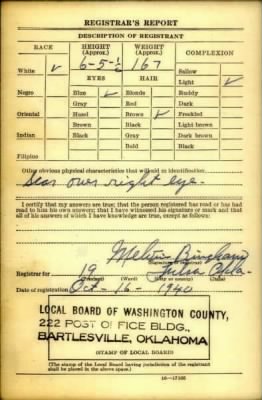 REGISTRAR'S REPORT
DESCRIPTION OF REGISTRANT
RACE
HEIGHT
(Approx.)
WEIGHT
(Approx.)
COMPLEXION
White ✓
6-5-½
167
Sallow
EYES
HAIR
Light ✓
Negro
Blue ✓
Blonde
Ruddy
Gray
Red
Dark
Oriental
Hazel
Brown ✓
Freckled
Brown
Black
Light brown
Indian
Black
Gray
Dark brown
Bald
Black
Filipino
Other obvious physical characteristics that will aid in identification
Scar over right eye.
I certify that my answers are true; that the person registered has read or has had
read to him his own answers; that I have witnessed his signature or mark and that
all of his answers of which I have knowledge are true, except as follows:
Melvin Bingham
(Signature of registrar)
Registrar for 19 Tulsa Okla.
(Ward) (City) (State)
Date of registration Oct-16-1940
LOCAL BOARD OF WASHINGTON COUNTY,
222 POST OFFICE BLDG.,
BARTLESVILLE, OKLAHOMA
(STAMP OF LOCAL BOARD)
(The stamp of the Local Board having jurisdiction of the registrant
shall be placed in the above space.)